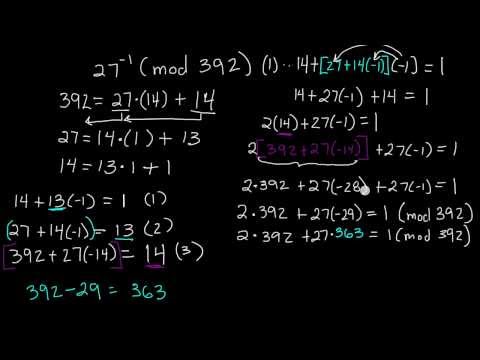 27⁻¹ (mod 392)
392 = 27·(14) + 14
27 = 14·(1) + 13
14 = 13·1 + 1
14 + 13(-1) = 1 (1)
(27 + 14(-1) = 13 (2)
[392 + 27(-14)] = 14 (3)
392 - 29 = 363
(1) ·· 14 + [27 + 14(-1)](-1) = 1
14 + 27(-1) + 14 = 1
2(14) + 27(-1) = 1
2[392 + 27(-14)] + 27(-1) = 1
2·392 + 27(-28) + 27(-1) = 1
2·392 + 27(-29) = 1 (mod 392)
2·392 + 27·363 = 1 (mod 392)